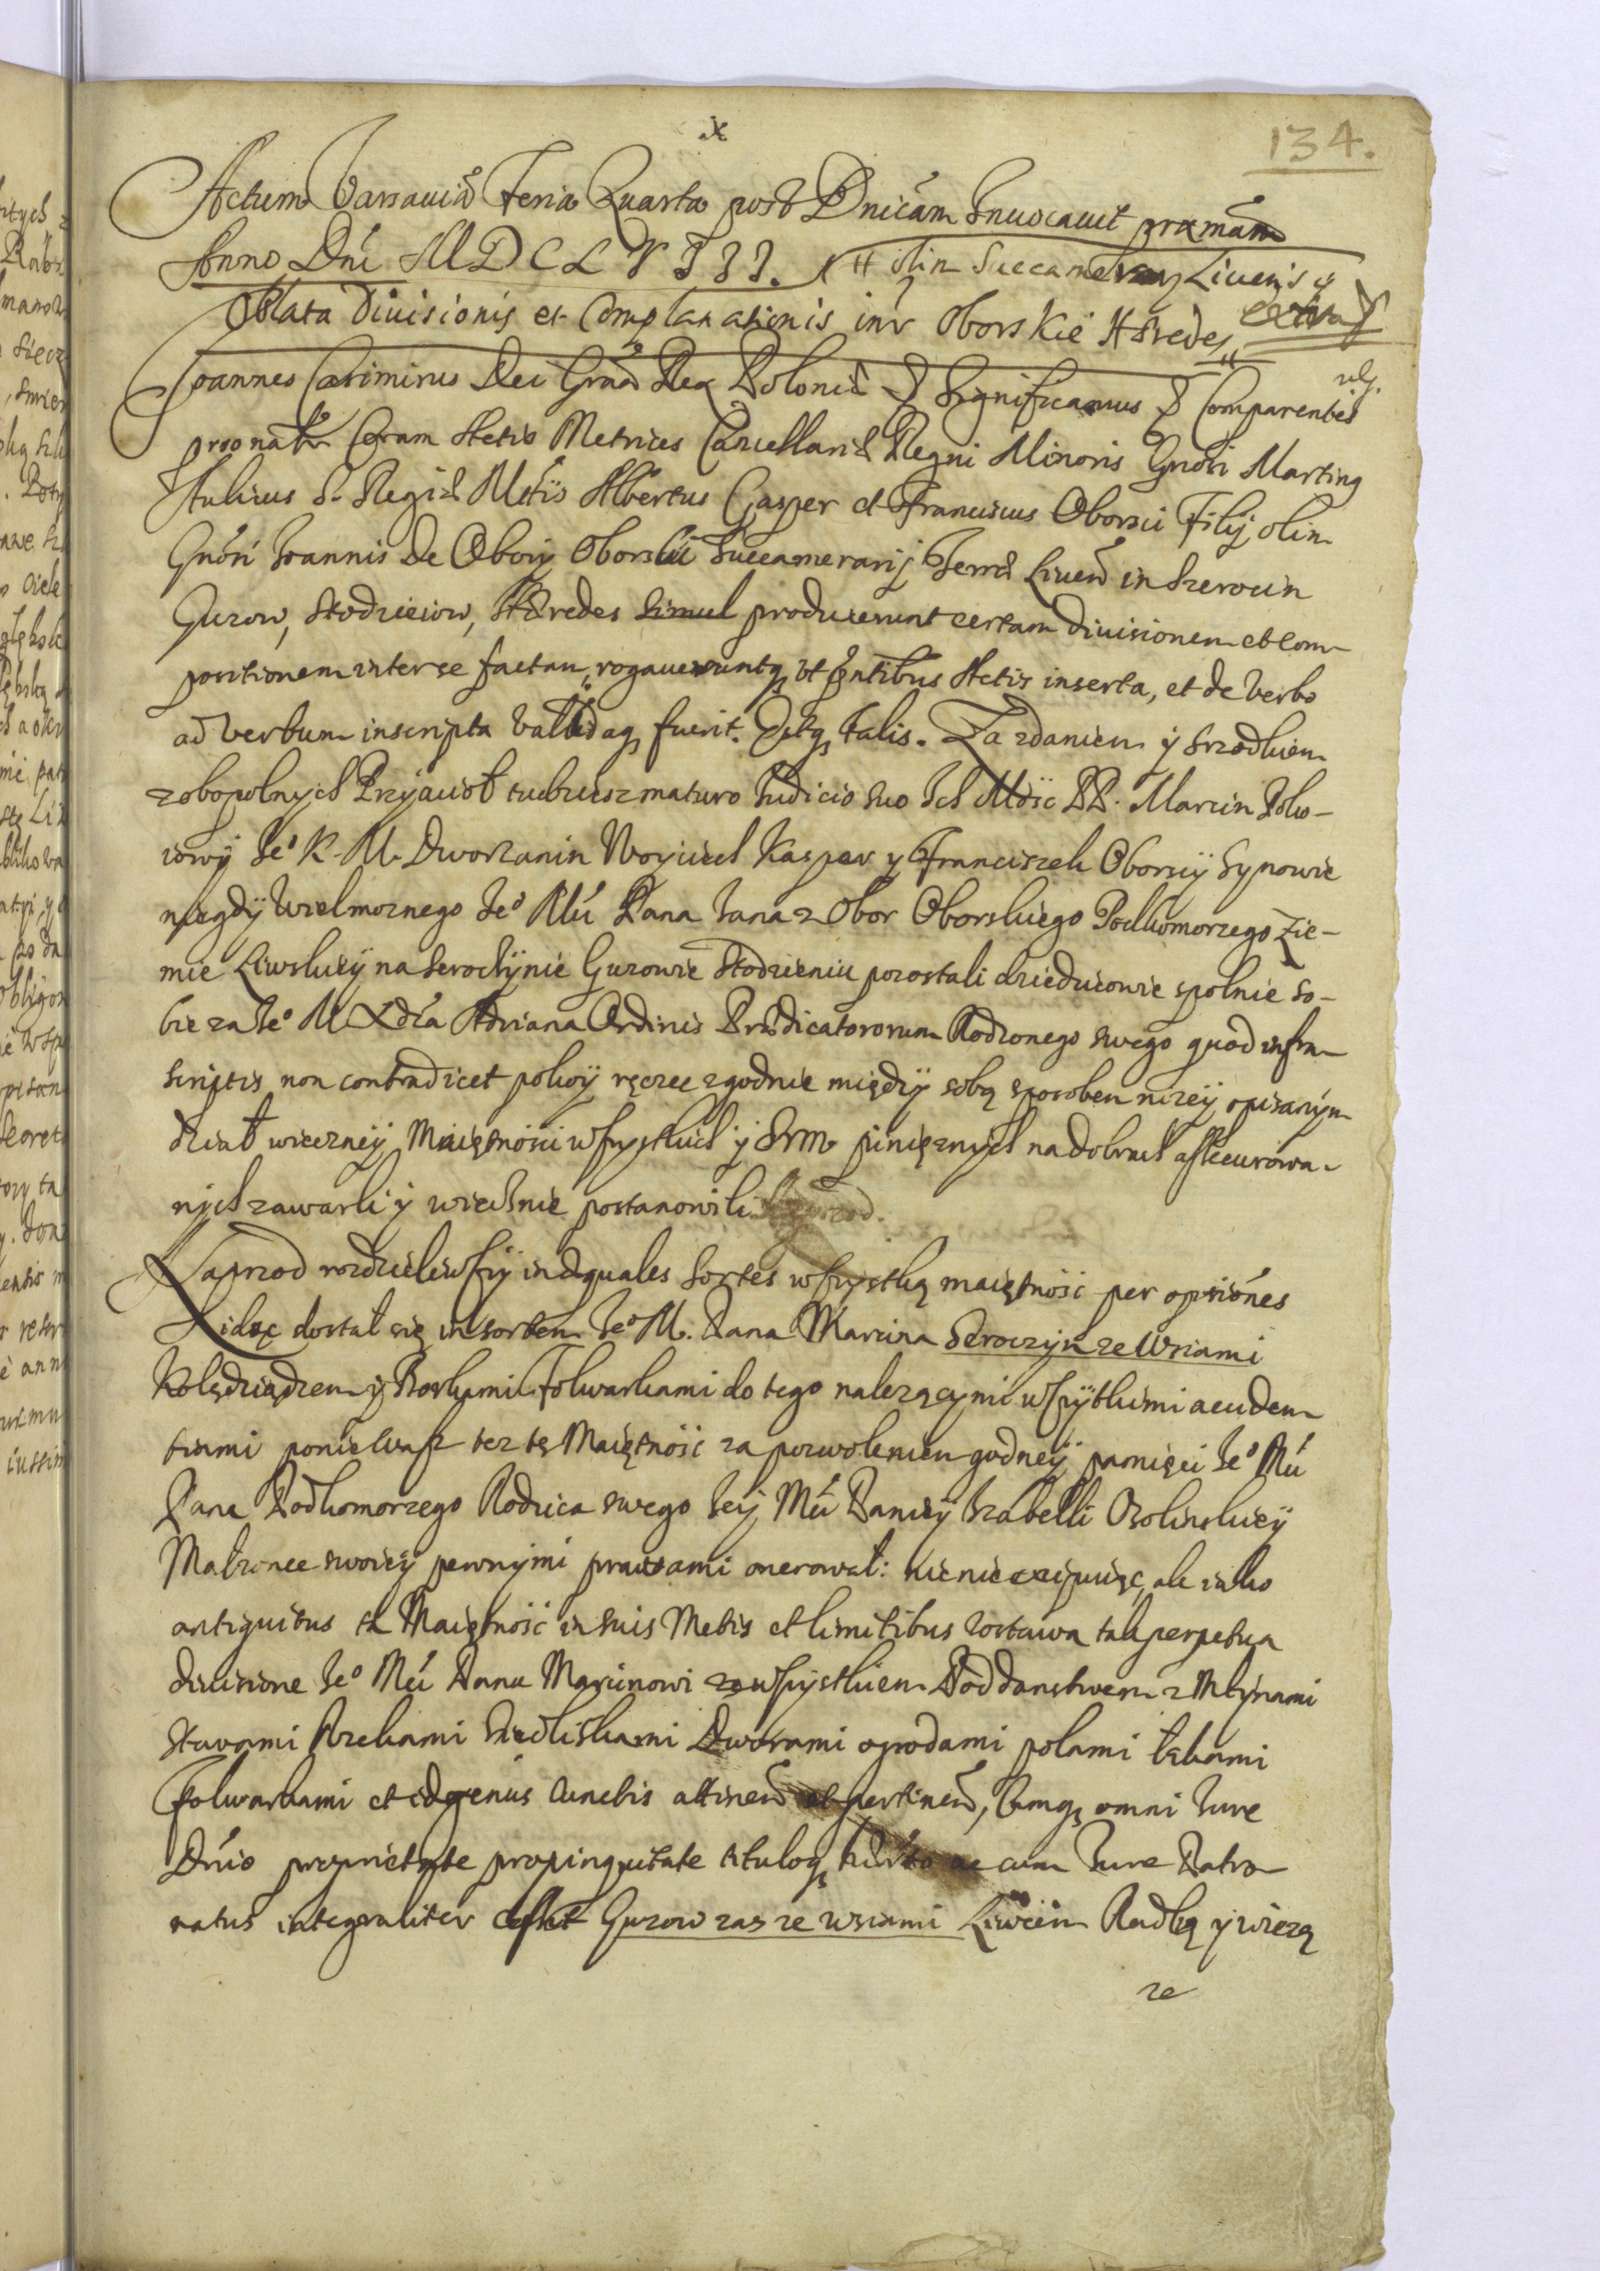 134.
Actum Varsaviæ Feria Quarta post Dnicam Invocavit proximam
Anno Dni MDCLVIII. # olim Succamerarij Livensis
Oblata Divisionis et Complanationis intr Oborskie Hæredes extra
Joannes Casimirus Dei Gra Rex Poloniæ & Significamus & Comparentes
prsonaltr Coram Actis Metrices Cancellariæ Regni Minoris Gnosi Martinq
Aulicus S. Regiæ Mttis Albertus Casper et Franciscus Oborscii Filij olim
Gnosi Joannis de Obory Oborskii Succamerarij Terræ Liven in Szerocin
Guzow, Stodzieiow, Hæredes simul produxerunt certam divisionem et com-
positionem inter se factam, rogaveruntq ut pntibus Actis inserta, et de verbo
ad verbum inscripta validaq fuerit. Estq talis. Za zdaniem y srzodkiem
zobopolnych Przyaciół tudziesz maturo Judicio suo Ich Mość PP. Marcin Poko-
iowy Jeo K. M. Dworzanin Woyciech Kasper y Franciszek Oborscy Synowie
niegdy Wielmoznego Jeo Mci Pana Jana z Obor Oborskiego Podkomorzego Zie-
mie Liwskiey na Seroczynie Guzowie Stodzieniu pozostali dziedzicowie spolnie so-
bie za Jeo M Xdza Adriana Ordinis Prædicatororum Rodzonego swego quod infra
scriptis non contradicet pokoy ręczec zgodnie między sobą sposobem nizey opisanym
dział wieczney Maiętności wszystkich y Summ pinięznych na dobrach assecurowa-
nych zawarli y wiecznie postanowili
Naprzod rozdzieliwszy in æquales sortes wszystkę maiętność per optiones
Idąc dostał się in sortem Jeo M. Pana Marcina Seroczyn ze wsiami
Kolędziądzem y Roskami Folwarkami do tego nalezącymi wszytkimi acciden-
tiami poniewasz tez tę Maiętność za pozwoleniem godney pamięci Jeo Mci
Pana Podkomorzego Rodzica swego Jey Mci Paniey Izabelli Osolinskiey
Małzonce swoiey pewnymi prawami onerował: nic nie excipuiąc, ale iako
antiquitus ta Maiętność in suis Metis et limitibus zostawa tak perpetua
divisione Jeo Mci Panu Marcinowi ze wszystkiem Poddanstwem z Młynami
Stawami Rzekami Siedliskami Dworami ogrodami polami łąkami
Folwarkami et id genus cunctis attinen et pertinen, Jamq omni Jure
Dnio proprietate propinquitate tituloq hæredo ac cum Jure Patro-
natus integraliter cessit Guzow zas ze wsiami Liwcem Radlą y wiezą
ze